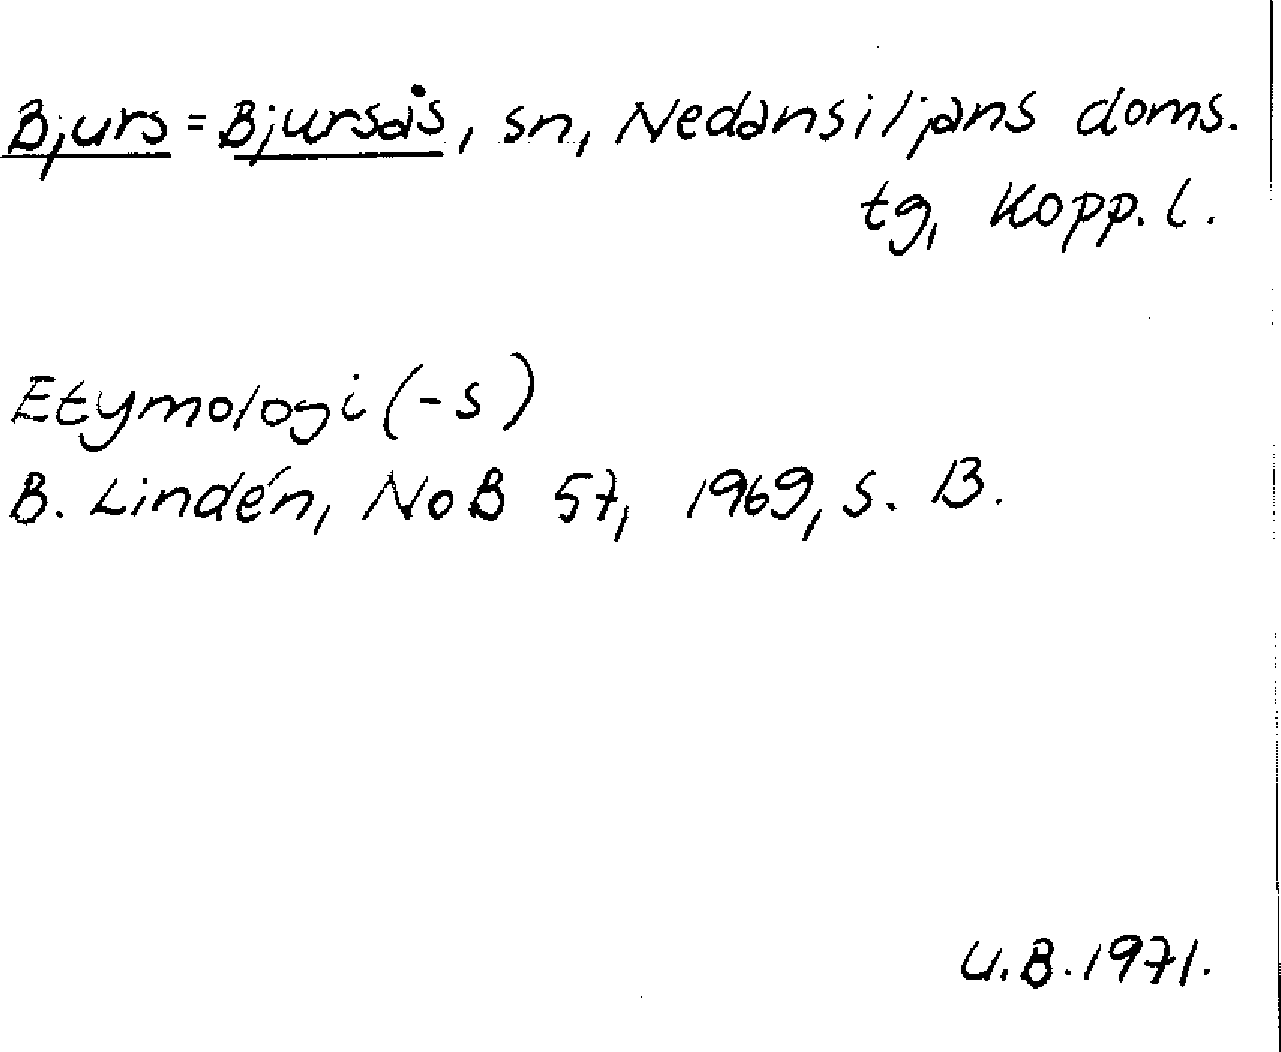 Bjurs = Bjursås, sn, Nedansiljans doms.
tg, Kopp. l.
Etymologi (-s)
B. Lindén, NoB 57, 1969, s. 13.
U.B. 1971.